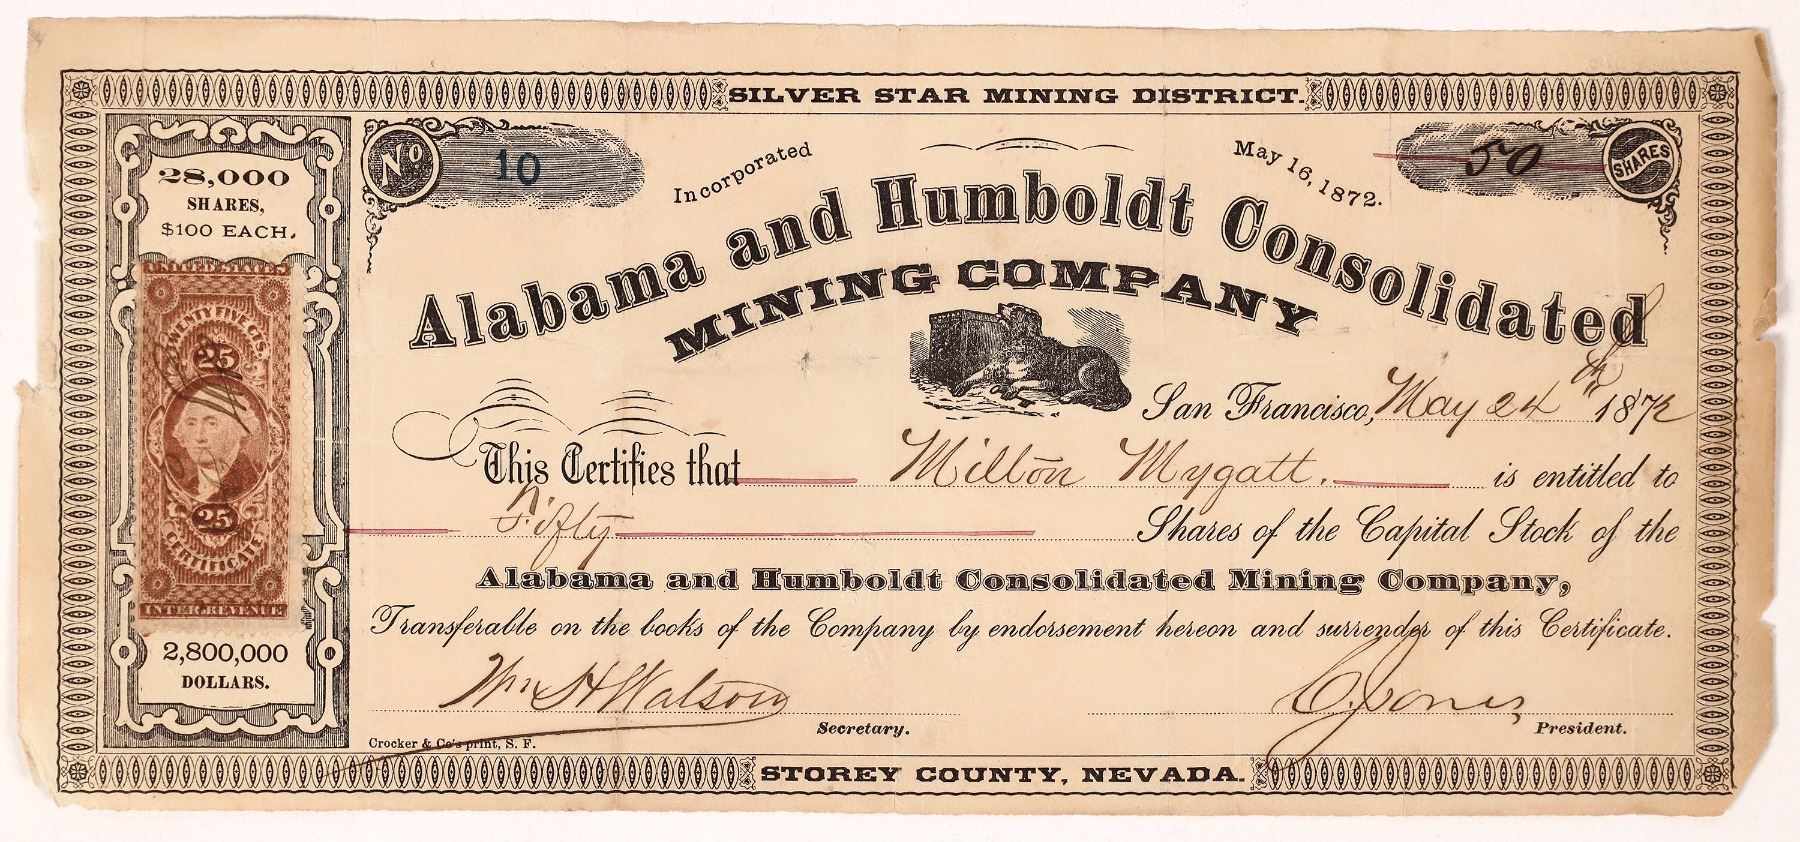 SILVER STAR MINING DISTRICT.
No 10
Incorporated May 16, 1872.
50 SHARES
28,000
SHARES,
$100 EACH.
Alabama and Humboldt Consolidated
MINING COMPANY
San Francisco, May 24th 1872
This Certifies that Milton Mygatt. is entitled to
Fifty Shares of the Capital Stock of the
Alabama and Humboldt Consolidated Mining Company,
Transferable on the books of the Company by endorsement hereon and surrender of this Certificate.
UNITED STATES
TWENTY FIVE CTS.
25
25
CERTIFICATE
INTER. REVENUE
2,800,000
DOLLARS.
Wm H Watson
Secretary.
C. Jones
President.
Crocker & Co's print, S. F.
STOREY COUNTY, NEVADA.